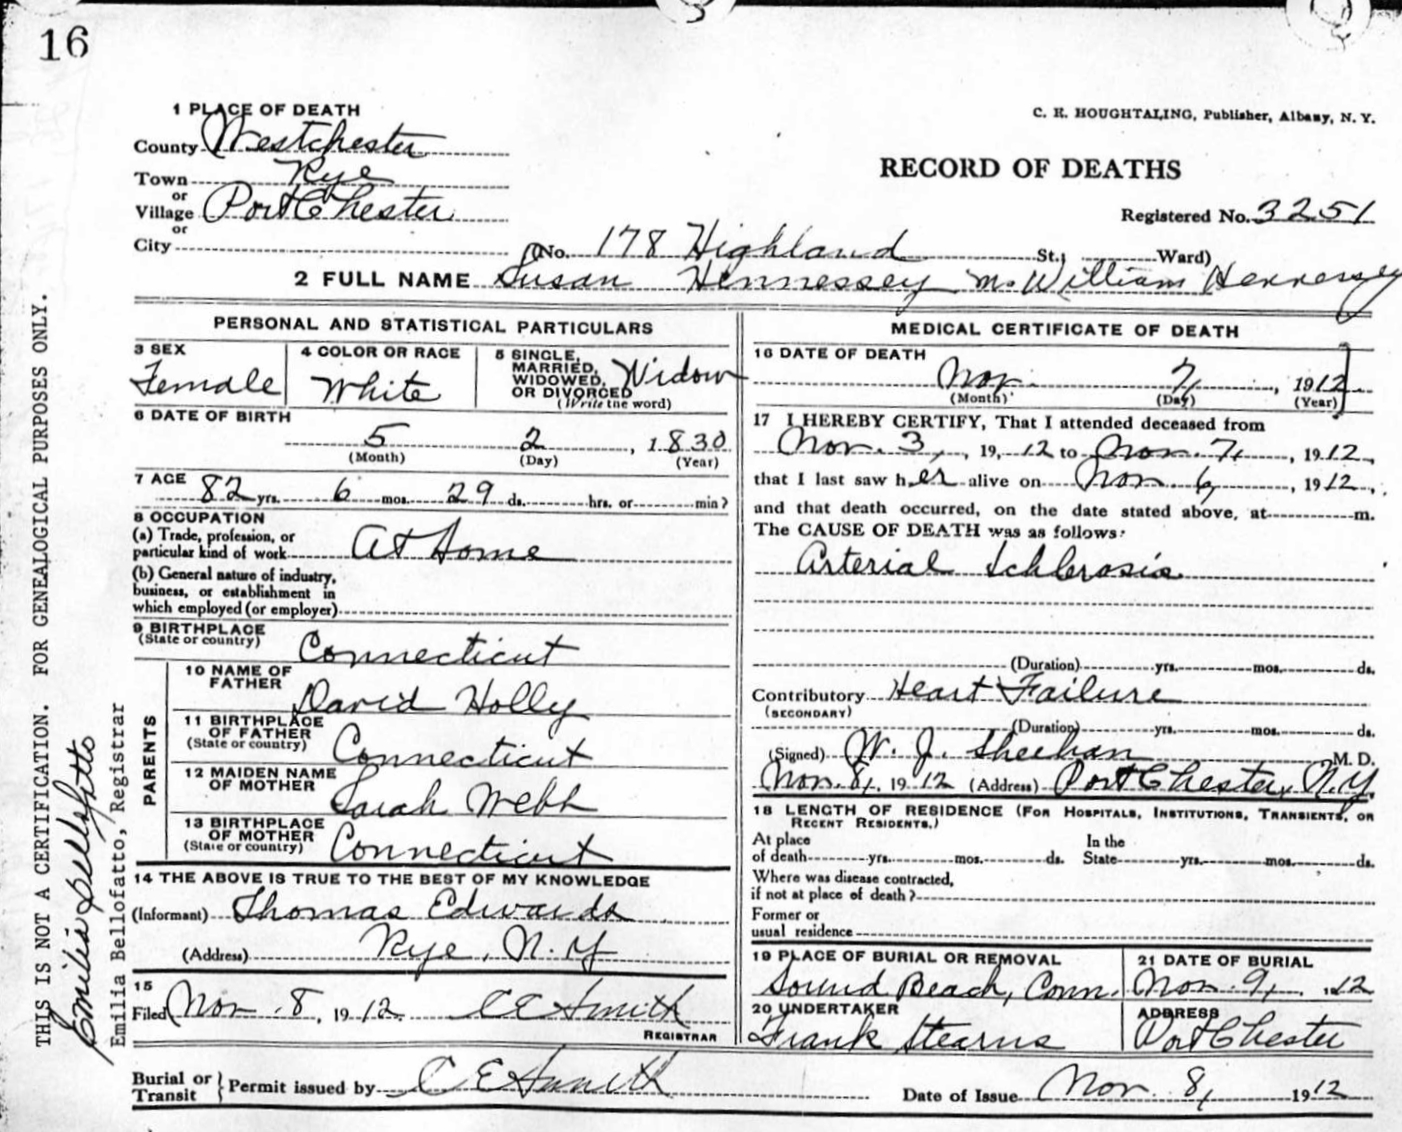 16
1 PLACE OF DEATH
C. E. HOUGHTALING, Publisher, Albany, N. Y.
County Westchester
RECORD OF DEATHS
Town Rye
or
Village Port Chester
Registered No. 3251
or
City (No. 178 Highland St., Ward)
2 FULL NAME Susan Hennessey m. William Hennessey
PERSONAL AND STATISTICAL PARTICULARS
3 SEX
Female
4 COLOR OR RACE
White
5 SINGLE,
MARRIED,
WIDOWED,
OR DIVORCED
(Write the word)
Widow
6 DATE OF BIRTH
5 2, 1830
(Month) (Day) (Year)
7 AGE
82 yrs. 6 mos. 29 ds. hrs. or min?
8 OCCUPATION
(a) Trade, profession, or
particular kind of work At Home
(b) General nature of industry,
business, or establishment in
which employed (or employer)
9 BIRTHPLACE
(State or country) Connecticut
PARENTS
10 NAME OF
FATHER David Holly
11 BIRTHPLACE
OF FATHER
(State or country) Connecticut
12 MAIDEN NAME
OF MOTHER Sarah Webb
13 BIRTHPLACE
OF MOTHER
(State or country) Connecticut
14 THE ABOVE IS TRUE TO THE BEST OF MY KNOWLEDGE
(Informant) Thomas Edwards
(Address) Rye, N.Y
15
Filed Nov. 8, 1912. C E Smith
REGISTRAR
MEDICAL CERTIFICATE OF DEATH
16 DATE OF DEATH
Nov. 7, 1912
(Month) (Day) (Year)
17 I HEREBY CERTIFY, That I attended deceased from
Nov. 3, 19, 12 to Nov. 7, 1912,
that I last saw her alive on Nov. 6, 1912,
and that death occurred, on the date stated above, at m.
The CAUSE OF DEATH was as follows:
Arterial Schlerosis
(Duration) yrs. mos. ds.
Contributory Heart Failure
(SECONDARY)
(Duration) yrs. mos. ds.
(Signed) W. J. Sheehan M. D.
Nov. 8, 1912 (Address) Port Chester, N.Y.
18 LENGTH OF RESIDENCE (FOR HOSPITALS, INSTITUTIONS, TRANSIENTS, OR
RECENT RESIDENTS.)
At place In the
of death yrs. mos. ds. State yrs. mos. ds.
Where was disease contracted,
if not at place of death?
Former or
usual residence
19 PLACE OF BURIAL OR REMOVAL
Sound Beach, Conn.
21 DATE OF BURIAL
Nov. 9, 12
20 UNDERTAKER
Frank Stearns
ADDRESS
Port Chester
Burial or
Transit } Permit issued by C E Smith
Date of Issue Nov. 8, 1912
THIS IS NOT A CERTIFICATION. FOR GENEALOGICAL PURPOSES ONLY.
Emilia Bellofatto
Emilia Bellofatto, Registrar